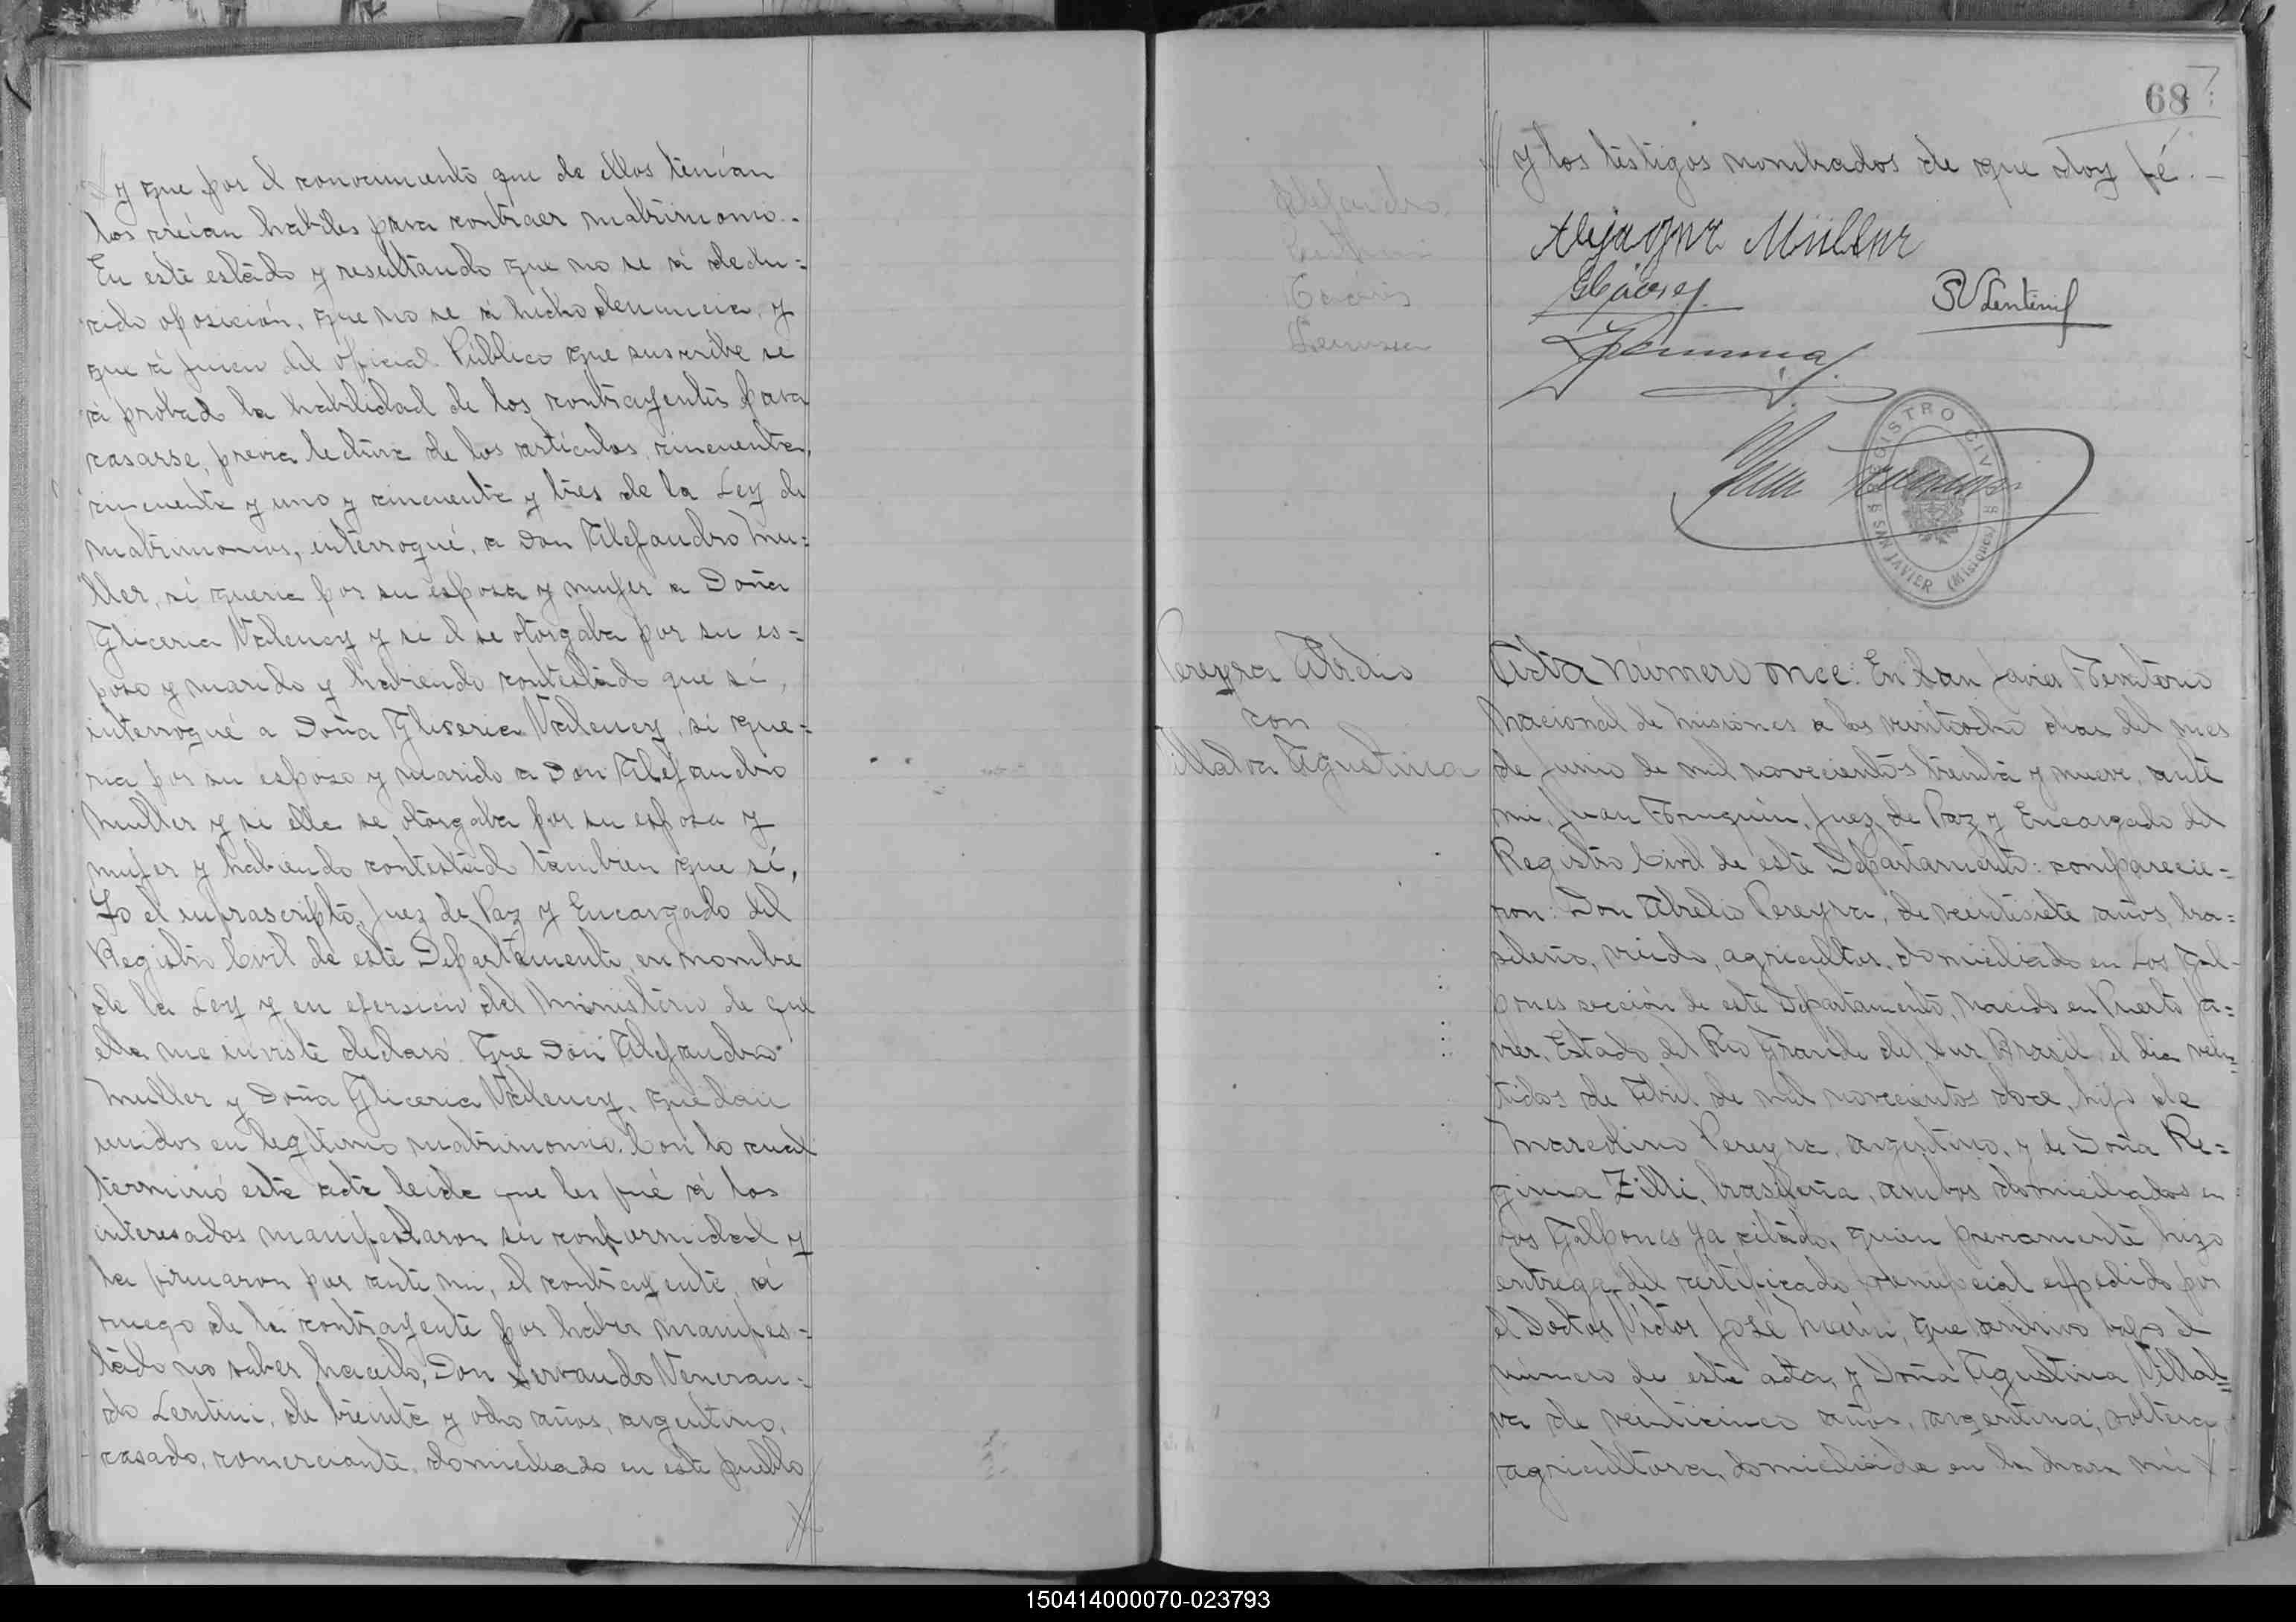 y que por el conocimiento que de ellos tenían
los creían habiles para contraer matrimonio.-
En este estado y resultando que no se á dedu=
cido oposición, que no se á hecho denuncia, y
que á juicio del oficial Público que suscribe se
á probado la habilidad de los contrayentes para
casarse, previa lectura de los artículos, cincuenta,
cincuenta y uno y cincuenta y tres de la Ley de
matrimonios, interroqué, a Don Alejandro Mu=
ller, si queria por su esposa y mujer a Doña
Gliceria Valency y si el se otorgaba por su es=
poso y marido y habiendo contestado que sí,
interroqué a Doña Gliseria Valency, si que=
ria por su esposo y marido a Don Alejandro
Muller y si ella se otorgaba por su esposa y
mujer y habiendo contestado tambien que sí,
Yo el infrascripto, Juez de Paz y Encargado del
Registro Civil de este Departamento, en nombre
de la Ley y en ejersicio del Ministerio de que
ella me inviste declaro: Que Don Alejandro
Muller y Doña Gliceria Valency, quedan
unidos en legítimo matrimonio. Con lo cual
terminó este acta leida que les fué á los
interesados manifestaron su conformidad y
la firmaron por ante mi, el contrayente, á
ruego de la contrayente por haber manifes-
tado no saber hacerlo, Don Servando Veneran-
do Lentini, de treinta y ocho años, argentino,
casado, comerciante, domiciliado en este pueblo
68
y los testigos nombrados de que doy fé.-
Alejandro
SVLentini
REGISTRO CIVIL
SAN JAVIER (Misiones)
Pereyra Abelio
con
Villalva Agustina
Acta número once: En San Javier Territorio
Nacional de Misiones a los veintiocho dias del mes
de Junio de mil novecientos treinta y nueve, ante
mi, Juan Truquin, Juez de Paz y Encargado del
Registro Civil de este Departamento: comparecie=
ron: Don Abelio Pereyra, de veintisiete años, bra=
sileño, viudo, agricultor, domiciliado en Los Gal-
pones sección de este Departamento, nacido en Puerto Ja=
vier, Estado del Rio Grande del Sur Brasil, el dia vein=
tidos de Abril de mil novecientos doce, hijo de
Marcelino Pereyra, argentino, y de Doña Re=
gina Zilli, brasileña, ambos domiciliados en
Los Galpones ya citado, quien previamente hizo
entrega del certificado prenupcial expedido por
el Doctor Víctor José Marini, que archivo bajo el
número de este acta, y Doña Agustina Villal=
va de veinticinco años, argentina, soltera,
agricultora, domiciliada en la
150414000070-023793